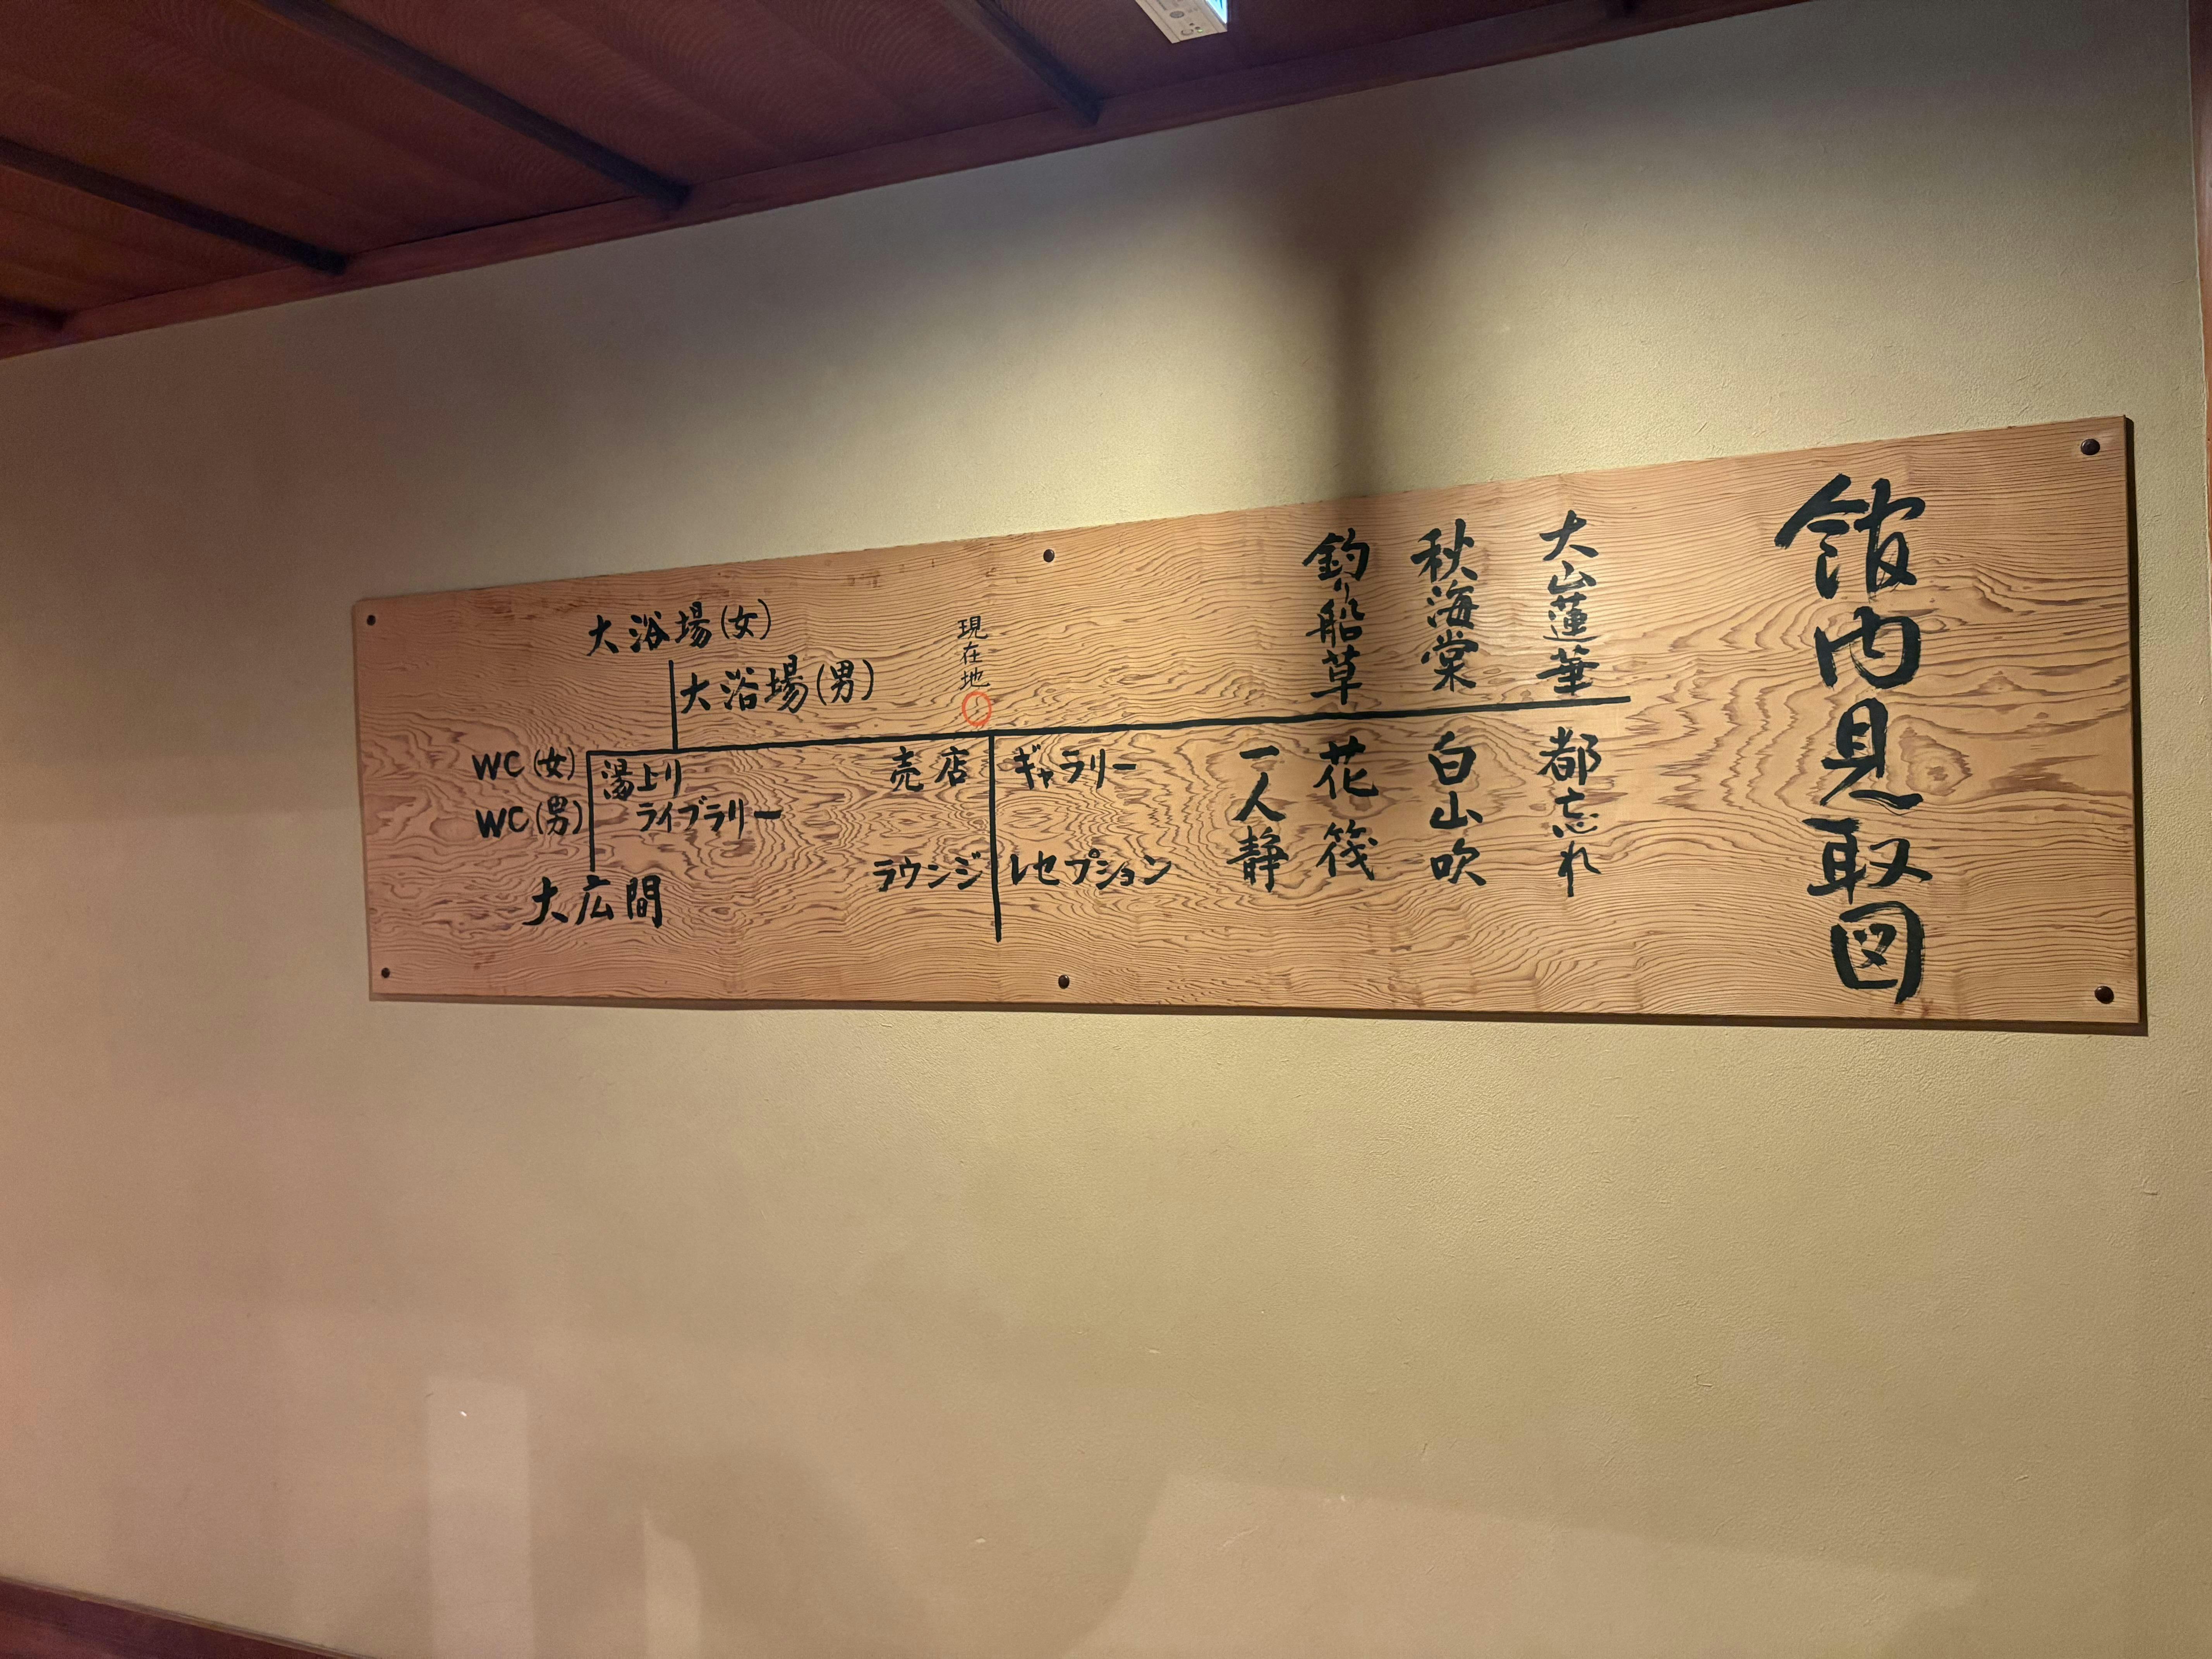 館内見取図
大山蓮華
秋海棠
釣り船草
都忘れ
白山吹
花筏
一人静
現在地
ギャラリー
レセプション
売店
ラウンジ
大浴場(女)
大浴場(男)
湯上り
ライブラリー
WC(女)
WC(男)
大広間